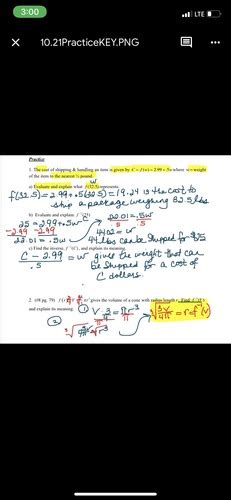 3:00
LTE
10.21PracticeKEY.PNG
Practice
1. The cost of shipping & handling an item is given by C = f(w) = 2.99 + .5w where w = weight
of the item to the nearest ½ pound.
a) Evaluate and explain what f(32.5) represents
f(32.5) = 2.99 + .5(32.5) = 19.24 is the cost to
ship a package weighing 32.5 lbs
b) Evaluate and explain
25 = 2.99 + .5w
22.01 = .5w
-2.99 -2.99
.5 .5
22.01 = .5w
44.02 = w
44 lbs can be shipped for $25
c) Find the inverse, f⁻¹(C), and explain its meaning.
C - 2.99 = w gives the weight that can
.5
be shipped for a cost of
C dollars.
2. (#8 pg. 79) gives the volume of a cone with radius
and explain its meaning.